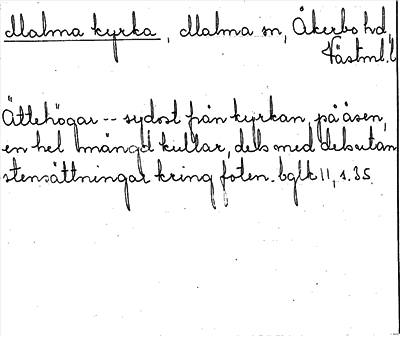 Malma kyrka, Malma sn, Åkerbo hd,
Västml. l
Ättehögar -- sydost från kyrkan, på åsen,
en hel mängd kullar, dels med dels utan
stensättningar kring foten. bglk 11, s. 35.